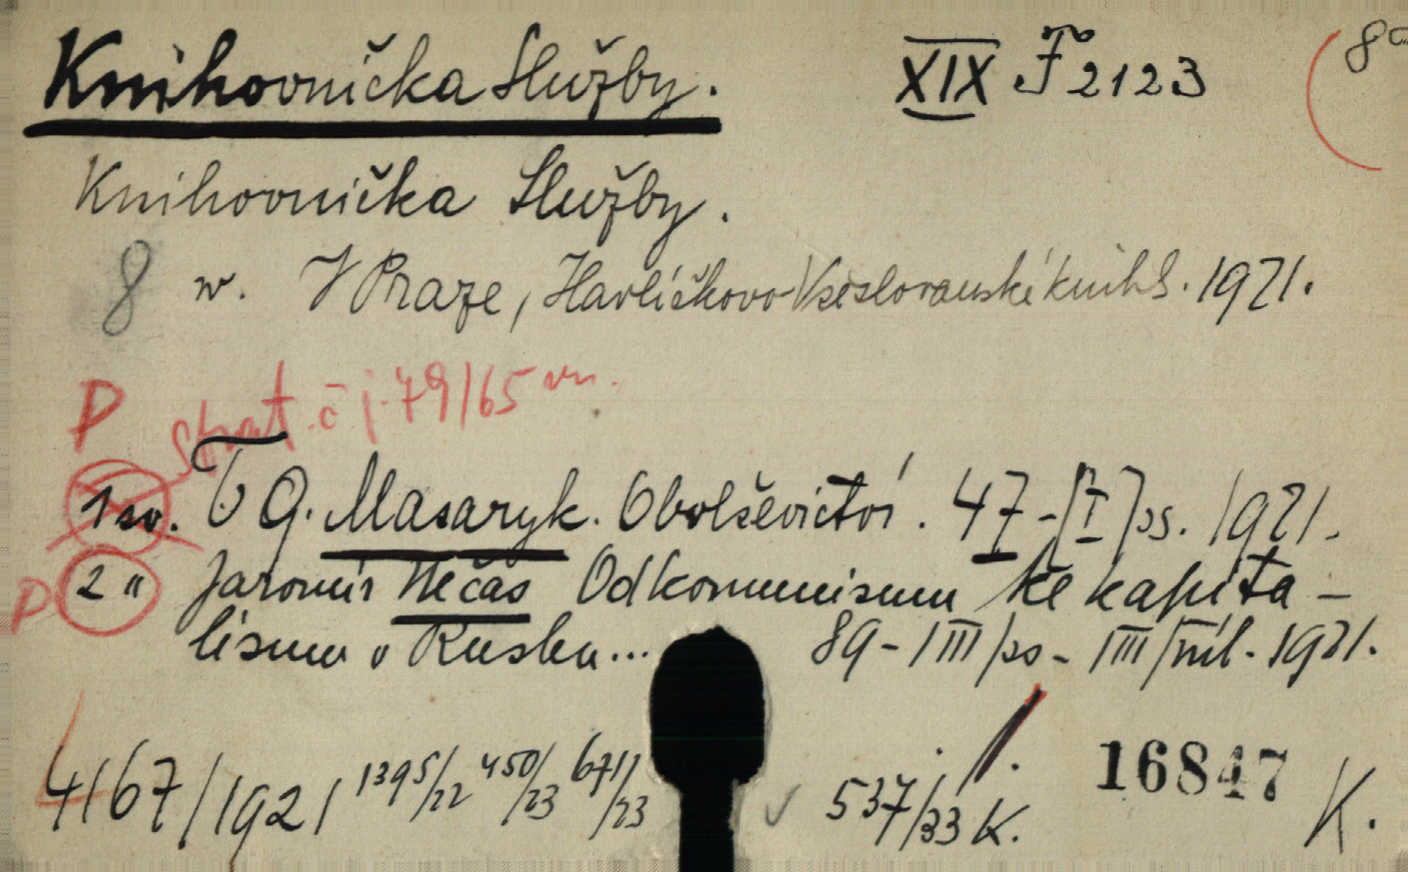 Knihovnička Služby. XIX F 2123 8°
Knihovnička Služby.
8 sv. V Praze, Havlíčkovo Vseslovanské knihk. 1921.
P strat. čj. 79/65
1 sv. T G. Masaryk. O bolševictví. 47-[I] ss. 1921.
P 2 " Jaromír Nečas Od komunismu ke kapita-
lismu v Rusku... 89-III ss- III příl. 1921.
4167/1921 1395/22 450/23 671/23 537/33 K. 16847 K.